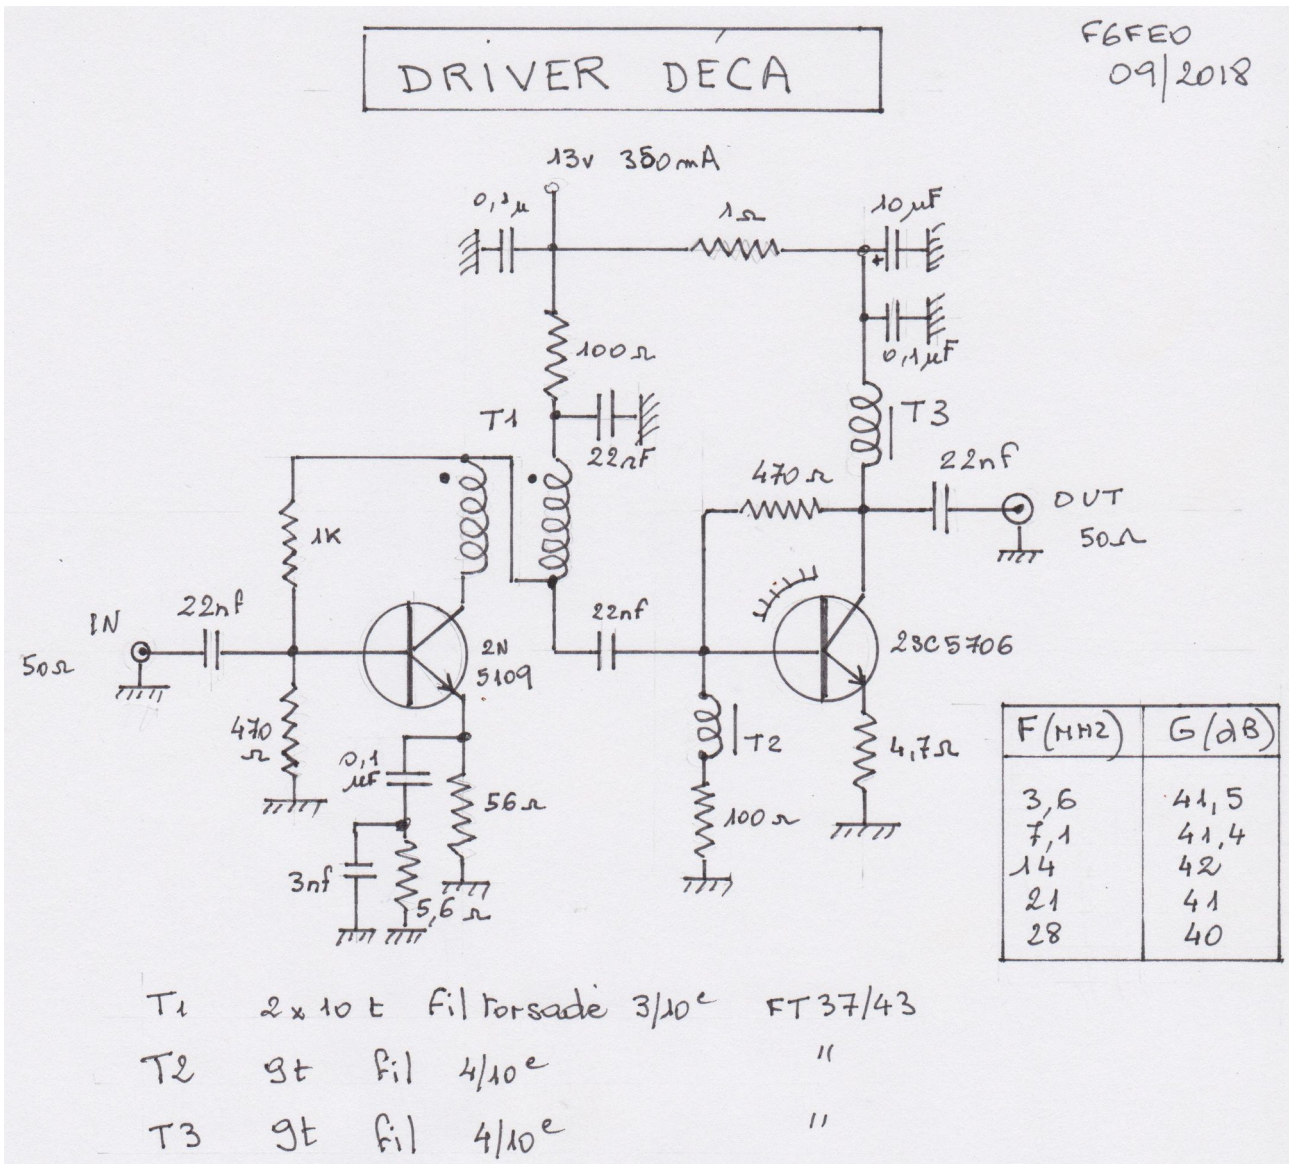 DRIVER DÉCA
F6FEO
09/2018
13v 350mA
0,1µ
1Ω
10µF
+
100Ω
0,1µF
T1
22nF
T3
470Ω
22nf
OUT
50Ω
1K
IN
50Ω
22nf
2N
5109
22nf
2SC5706
470
Ω
0,1
µF
56Ω
T2
4,7Ω
100Ω
3nf
5,6Ω
F(MHZ) G(dB)
3,6 41,5
7,1 41,4
14 42
21 41
28 40
T1 2x10t fil torsadé 3/10e FT37/43
T2 9t fil 4/10e "
T3 9t fil 4/10e "